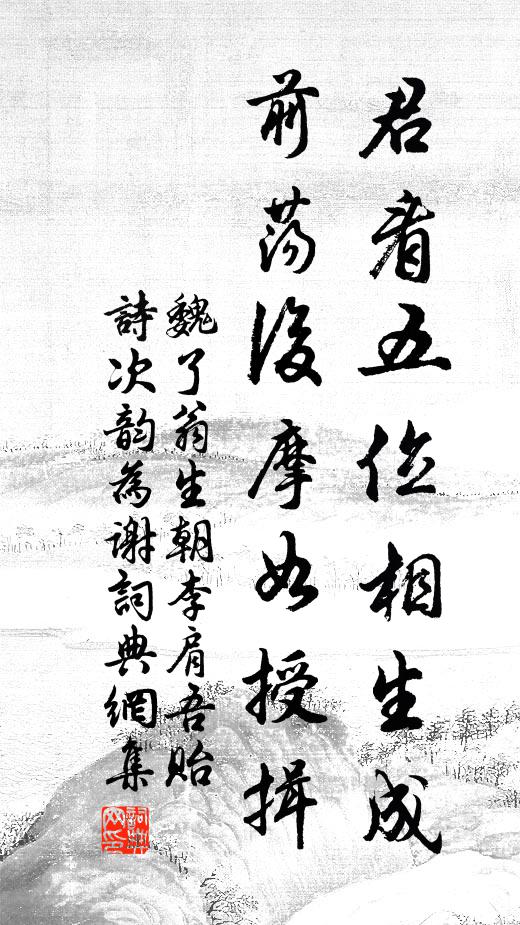 君看五位相生成
前荡後摩如授揖
魏了翁生朝李肩吾貽
詩次韵為谢詞典網集